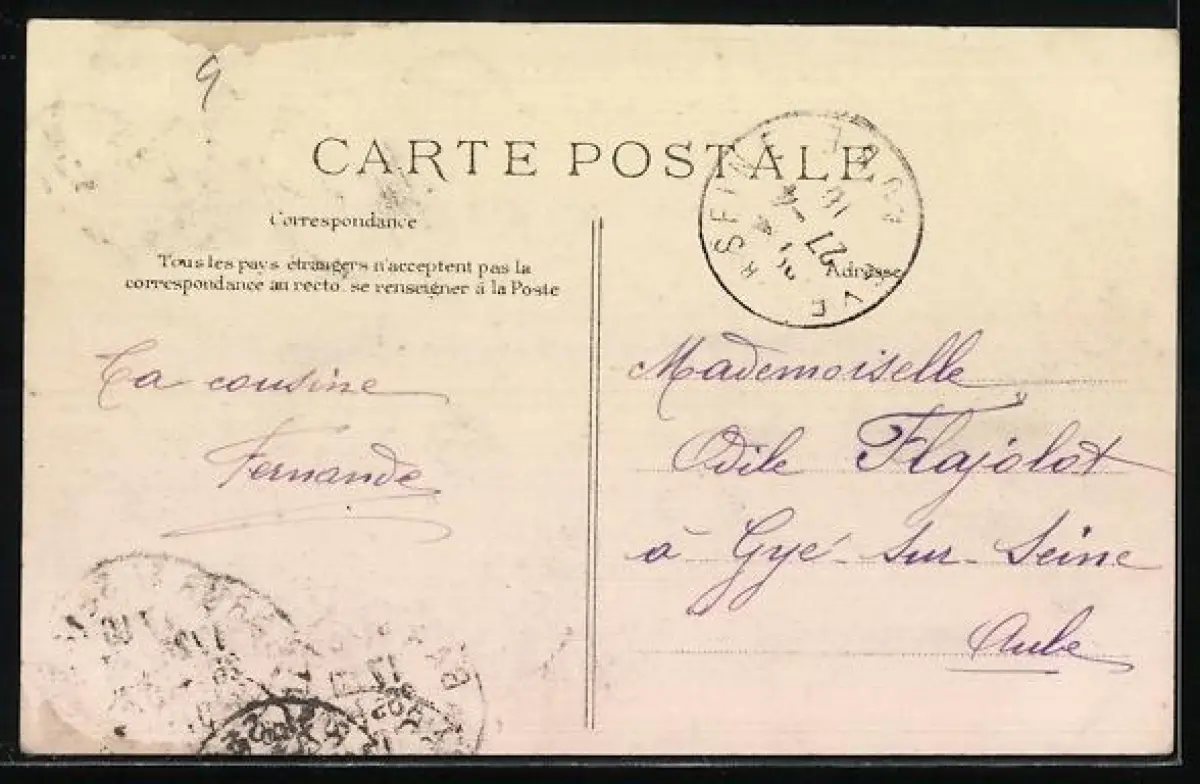 9
CARTE POSTALE
Correspondance
Tous les pays étrangers n'acceptent pas la
correspondance au recto, se renseigner à la Poste
Ta cousine
Fernande
Adresse
Mademoiselle
Odile Flajolot
à Gyé-sur-Seine
Aube